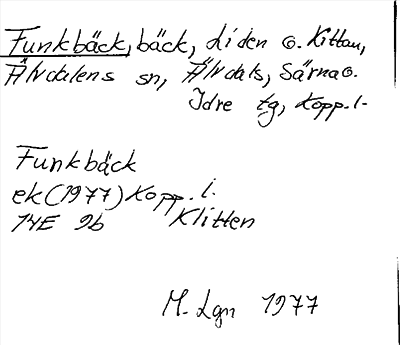 Funkbäck, bäck, Liden o. Kittau,
Älvdalens sn, Älvdals, Särna o.
Idre tg, Kopp. l.
Funkbäck
ek (1977) Kopp. l.
14E 9b Klitten
M. Lgn 1977